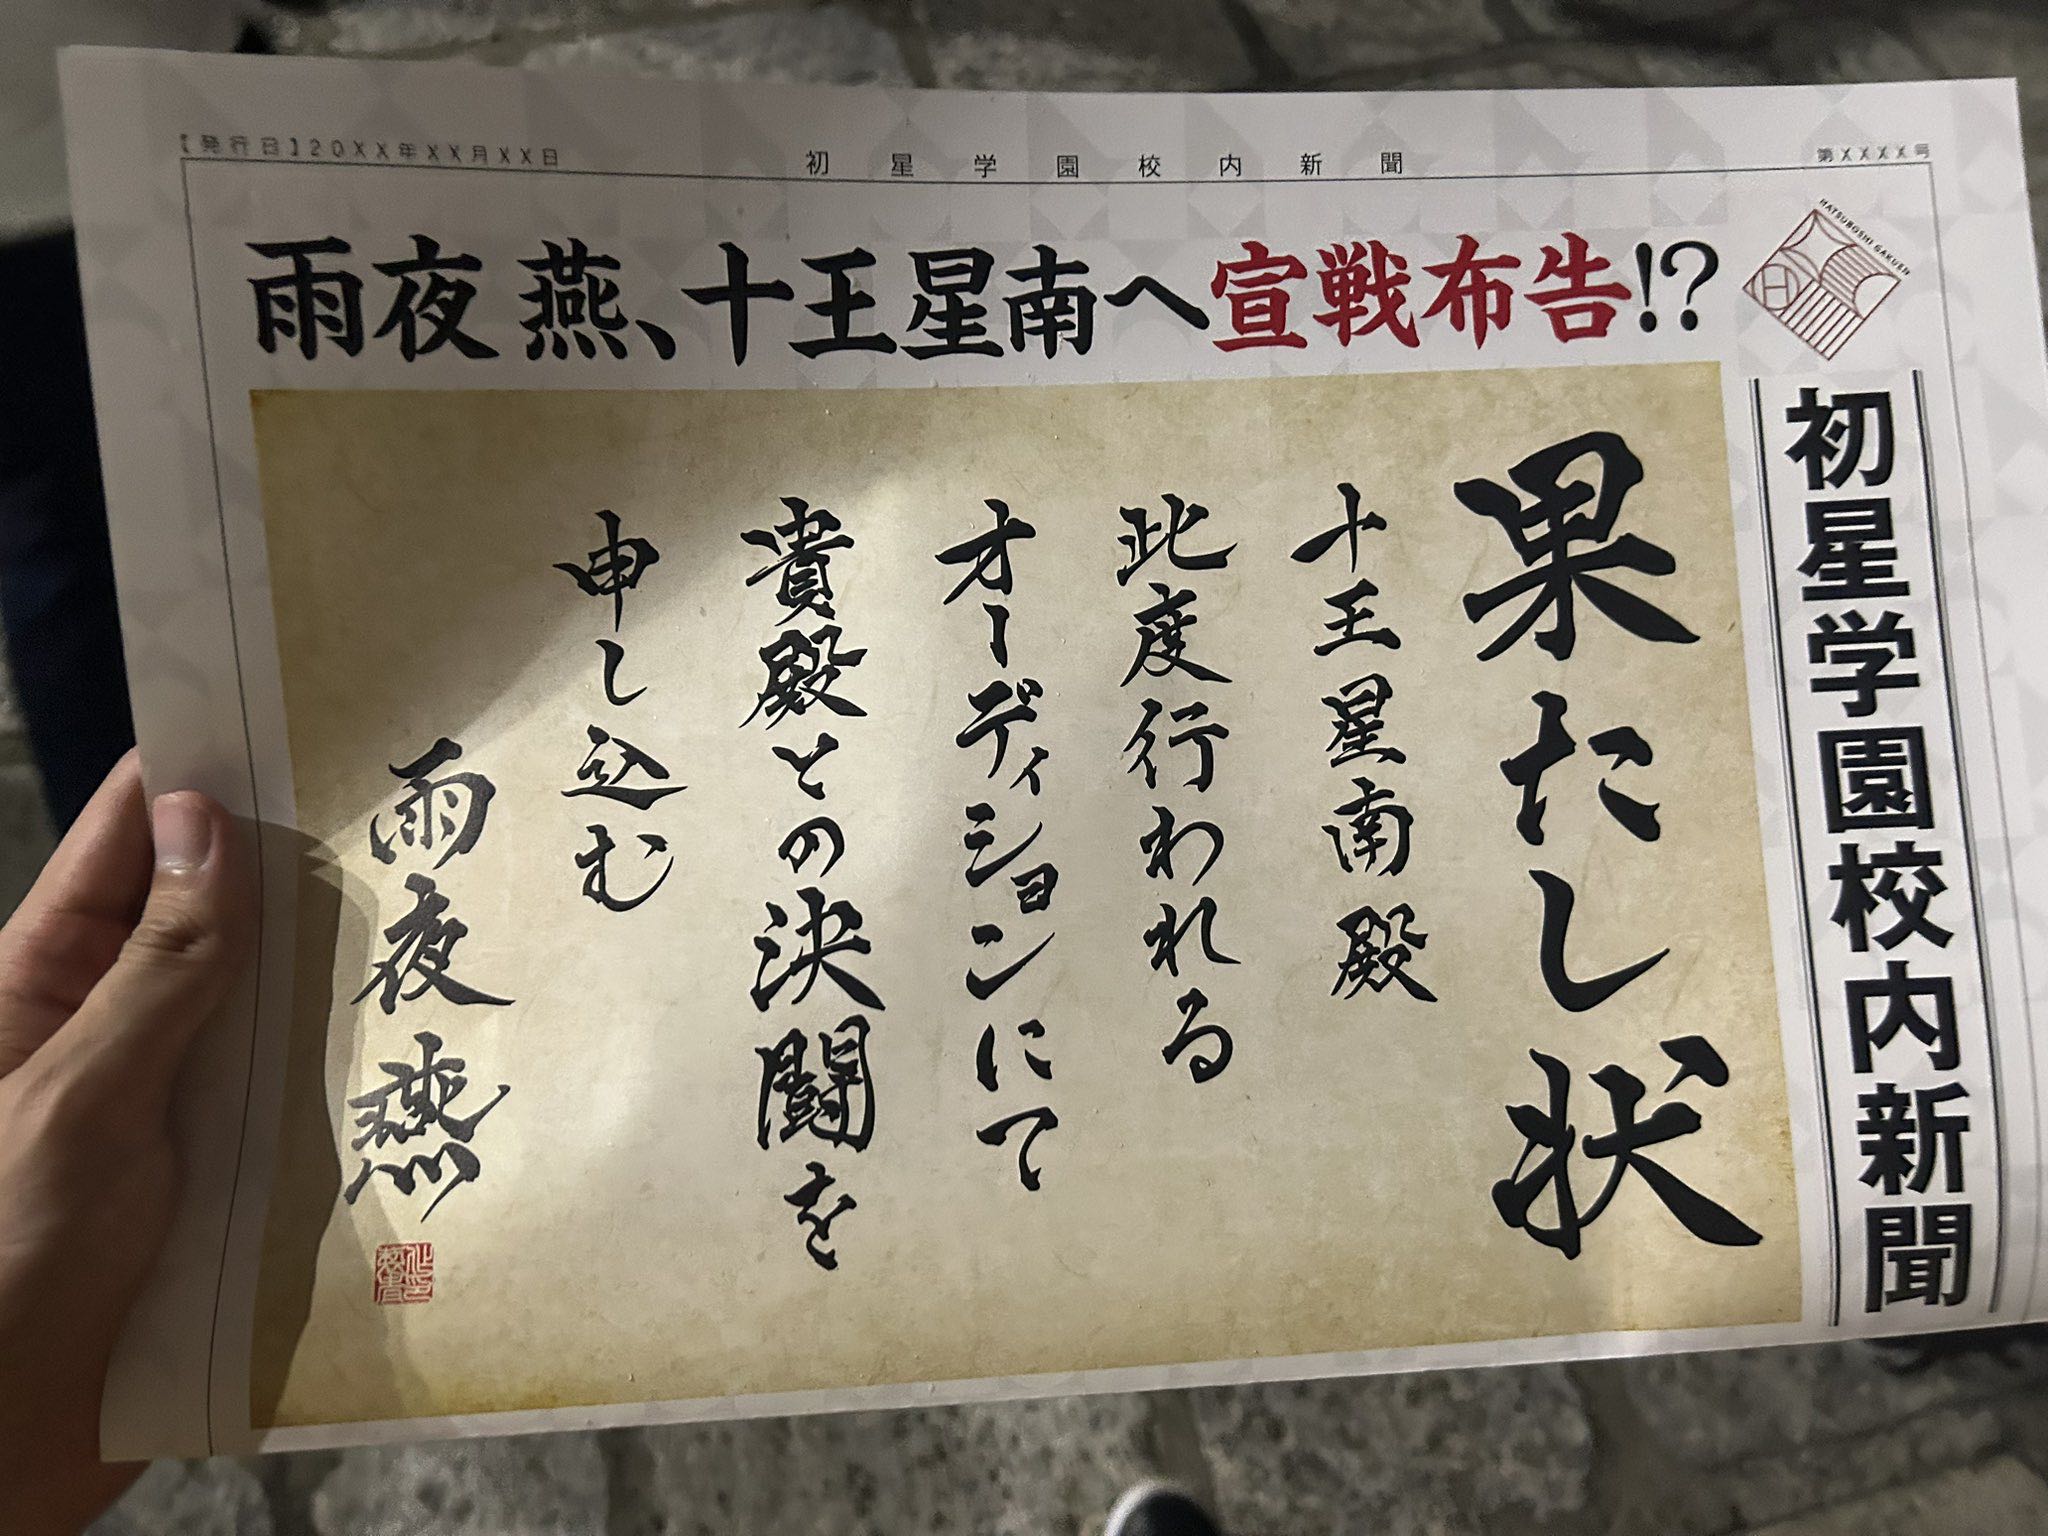 【発行日】20XX年XX月XX日
初星学園校内新聞
第XXXX号
雨夜 燕、十王星南へ宣戦布告!?
HATSUBOSHI GAKUEN
初星学園校内新聞
果たし状
十王星南殿
此度行われる
オーディションにて
貴殿との決闘を
申し込む
雨夜燕